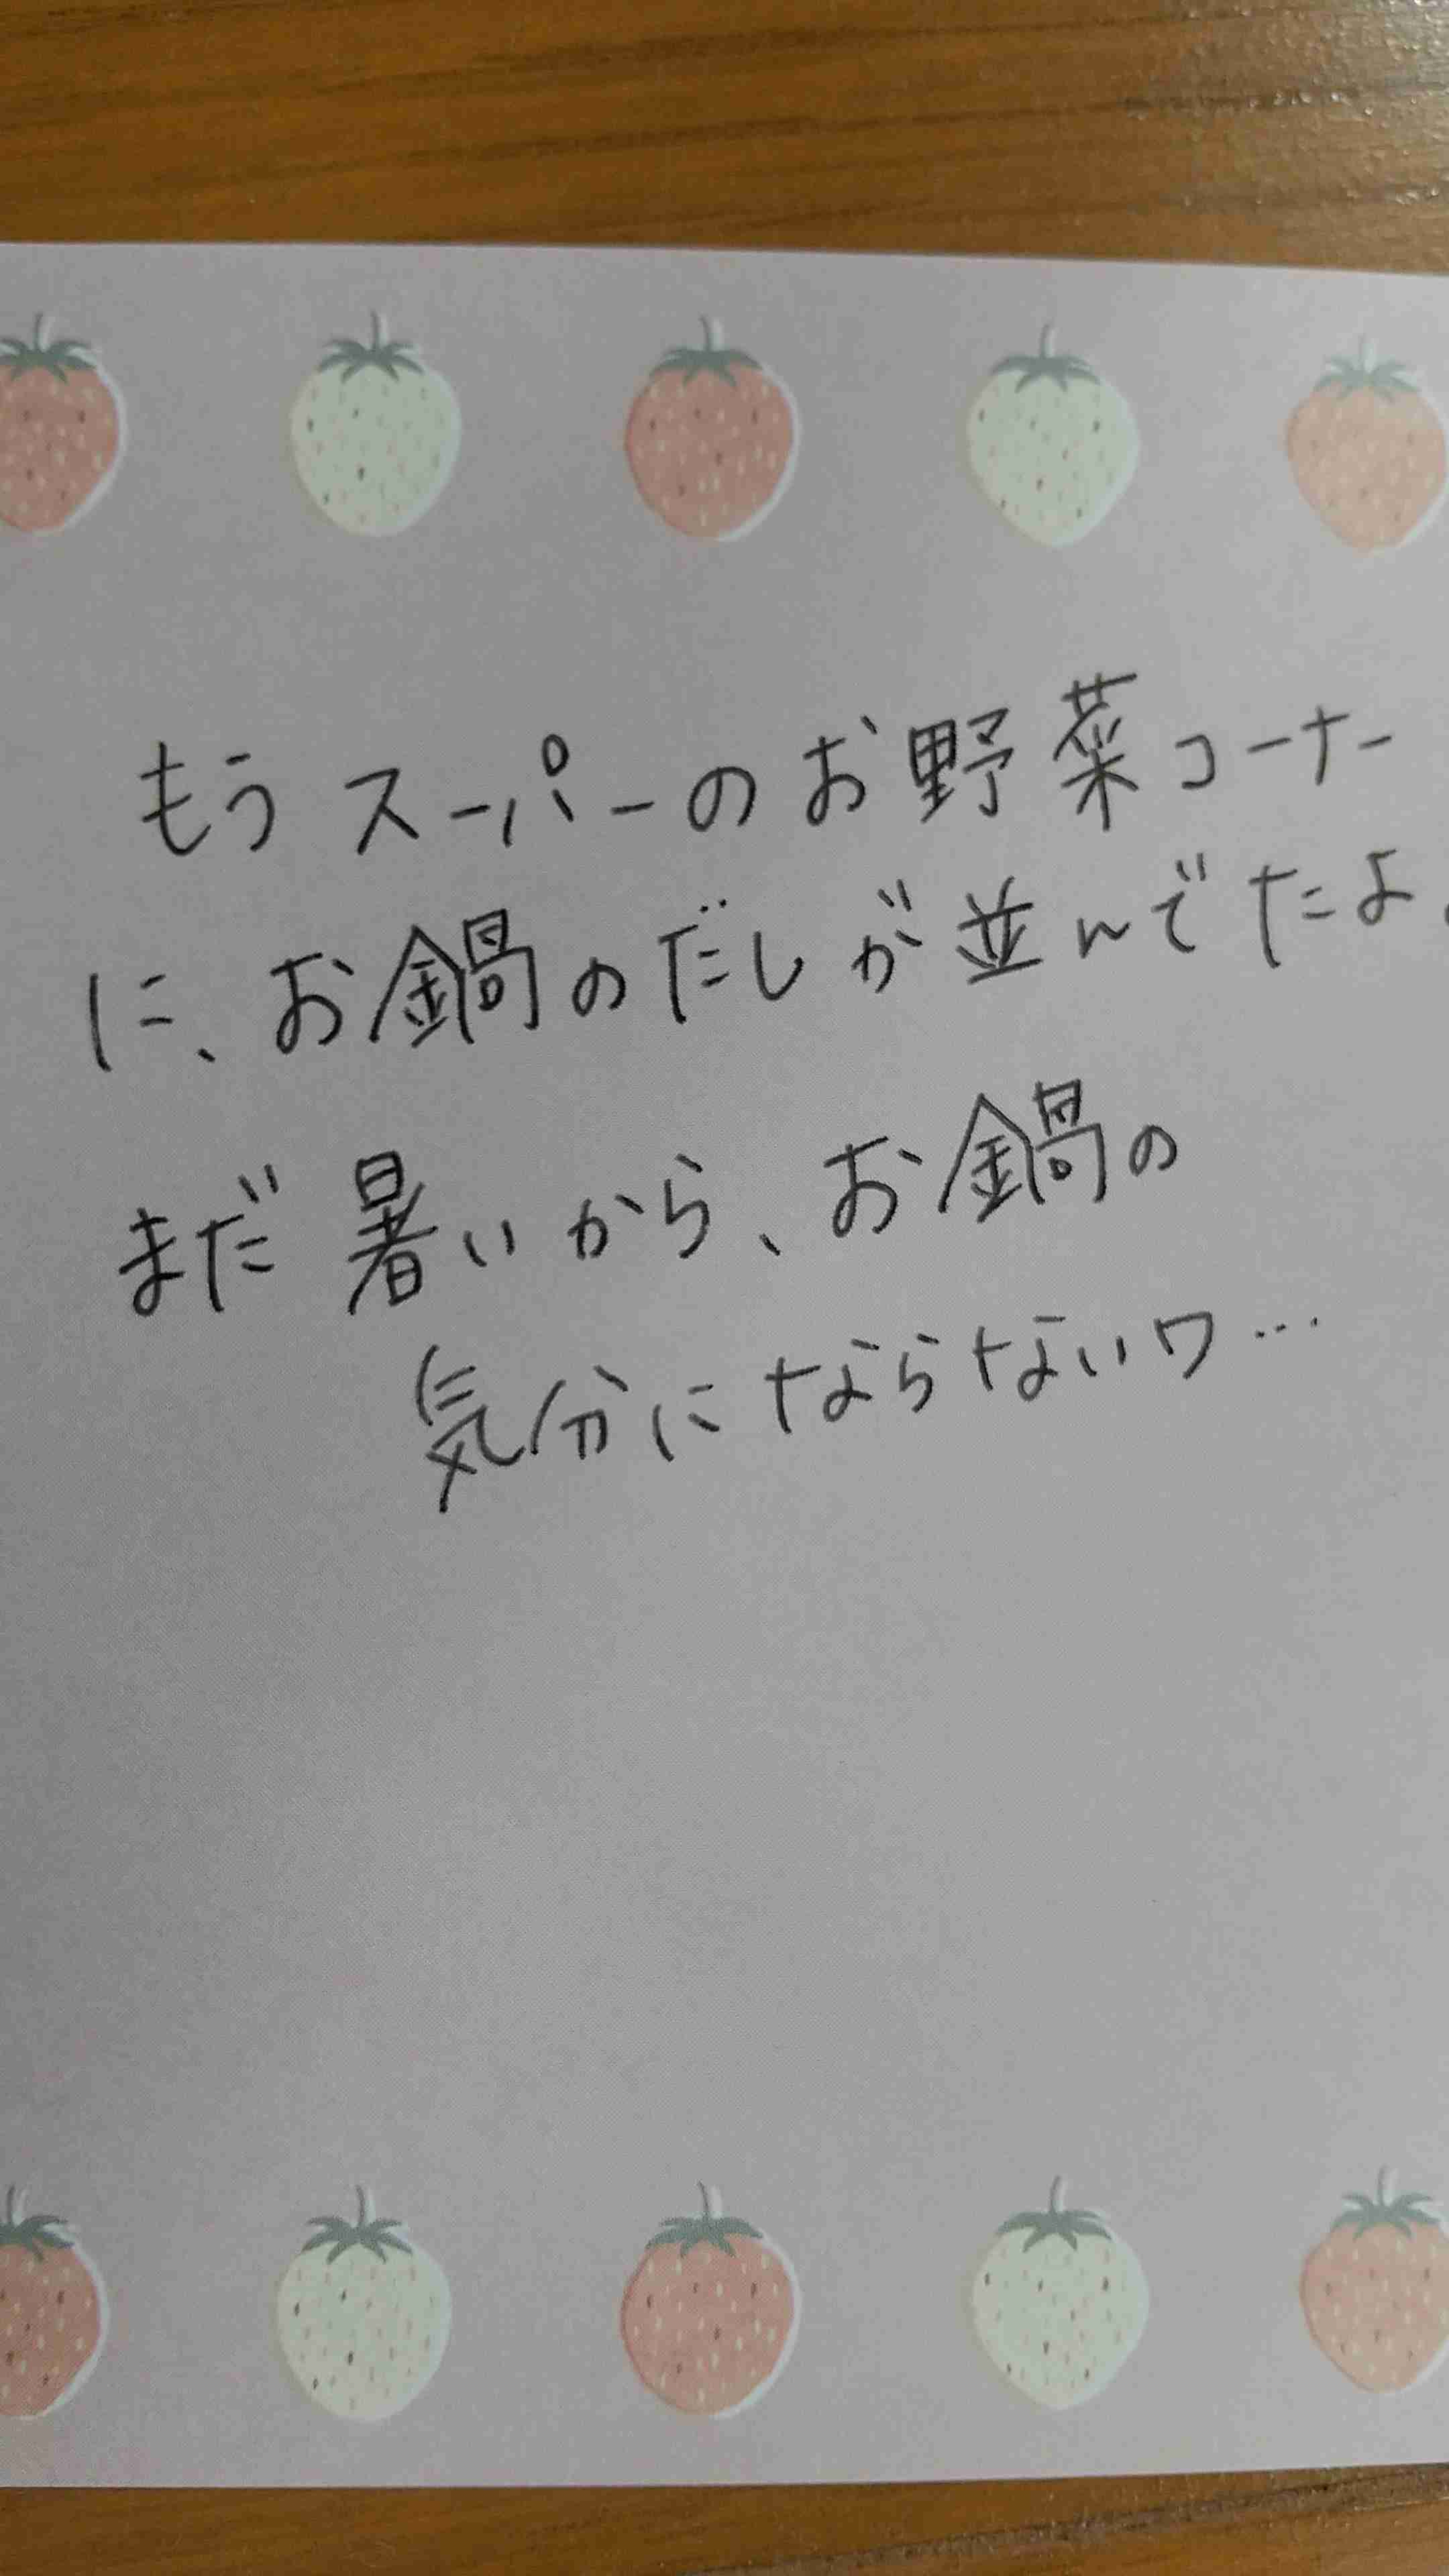 もうスーパーのお野菜コーナー
に、お鍋のだしが並んでたよ。
まだ暑いから、お鍋の
気分にならないワ…